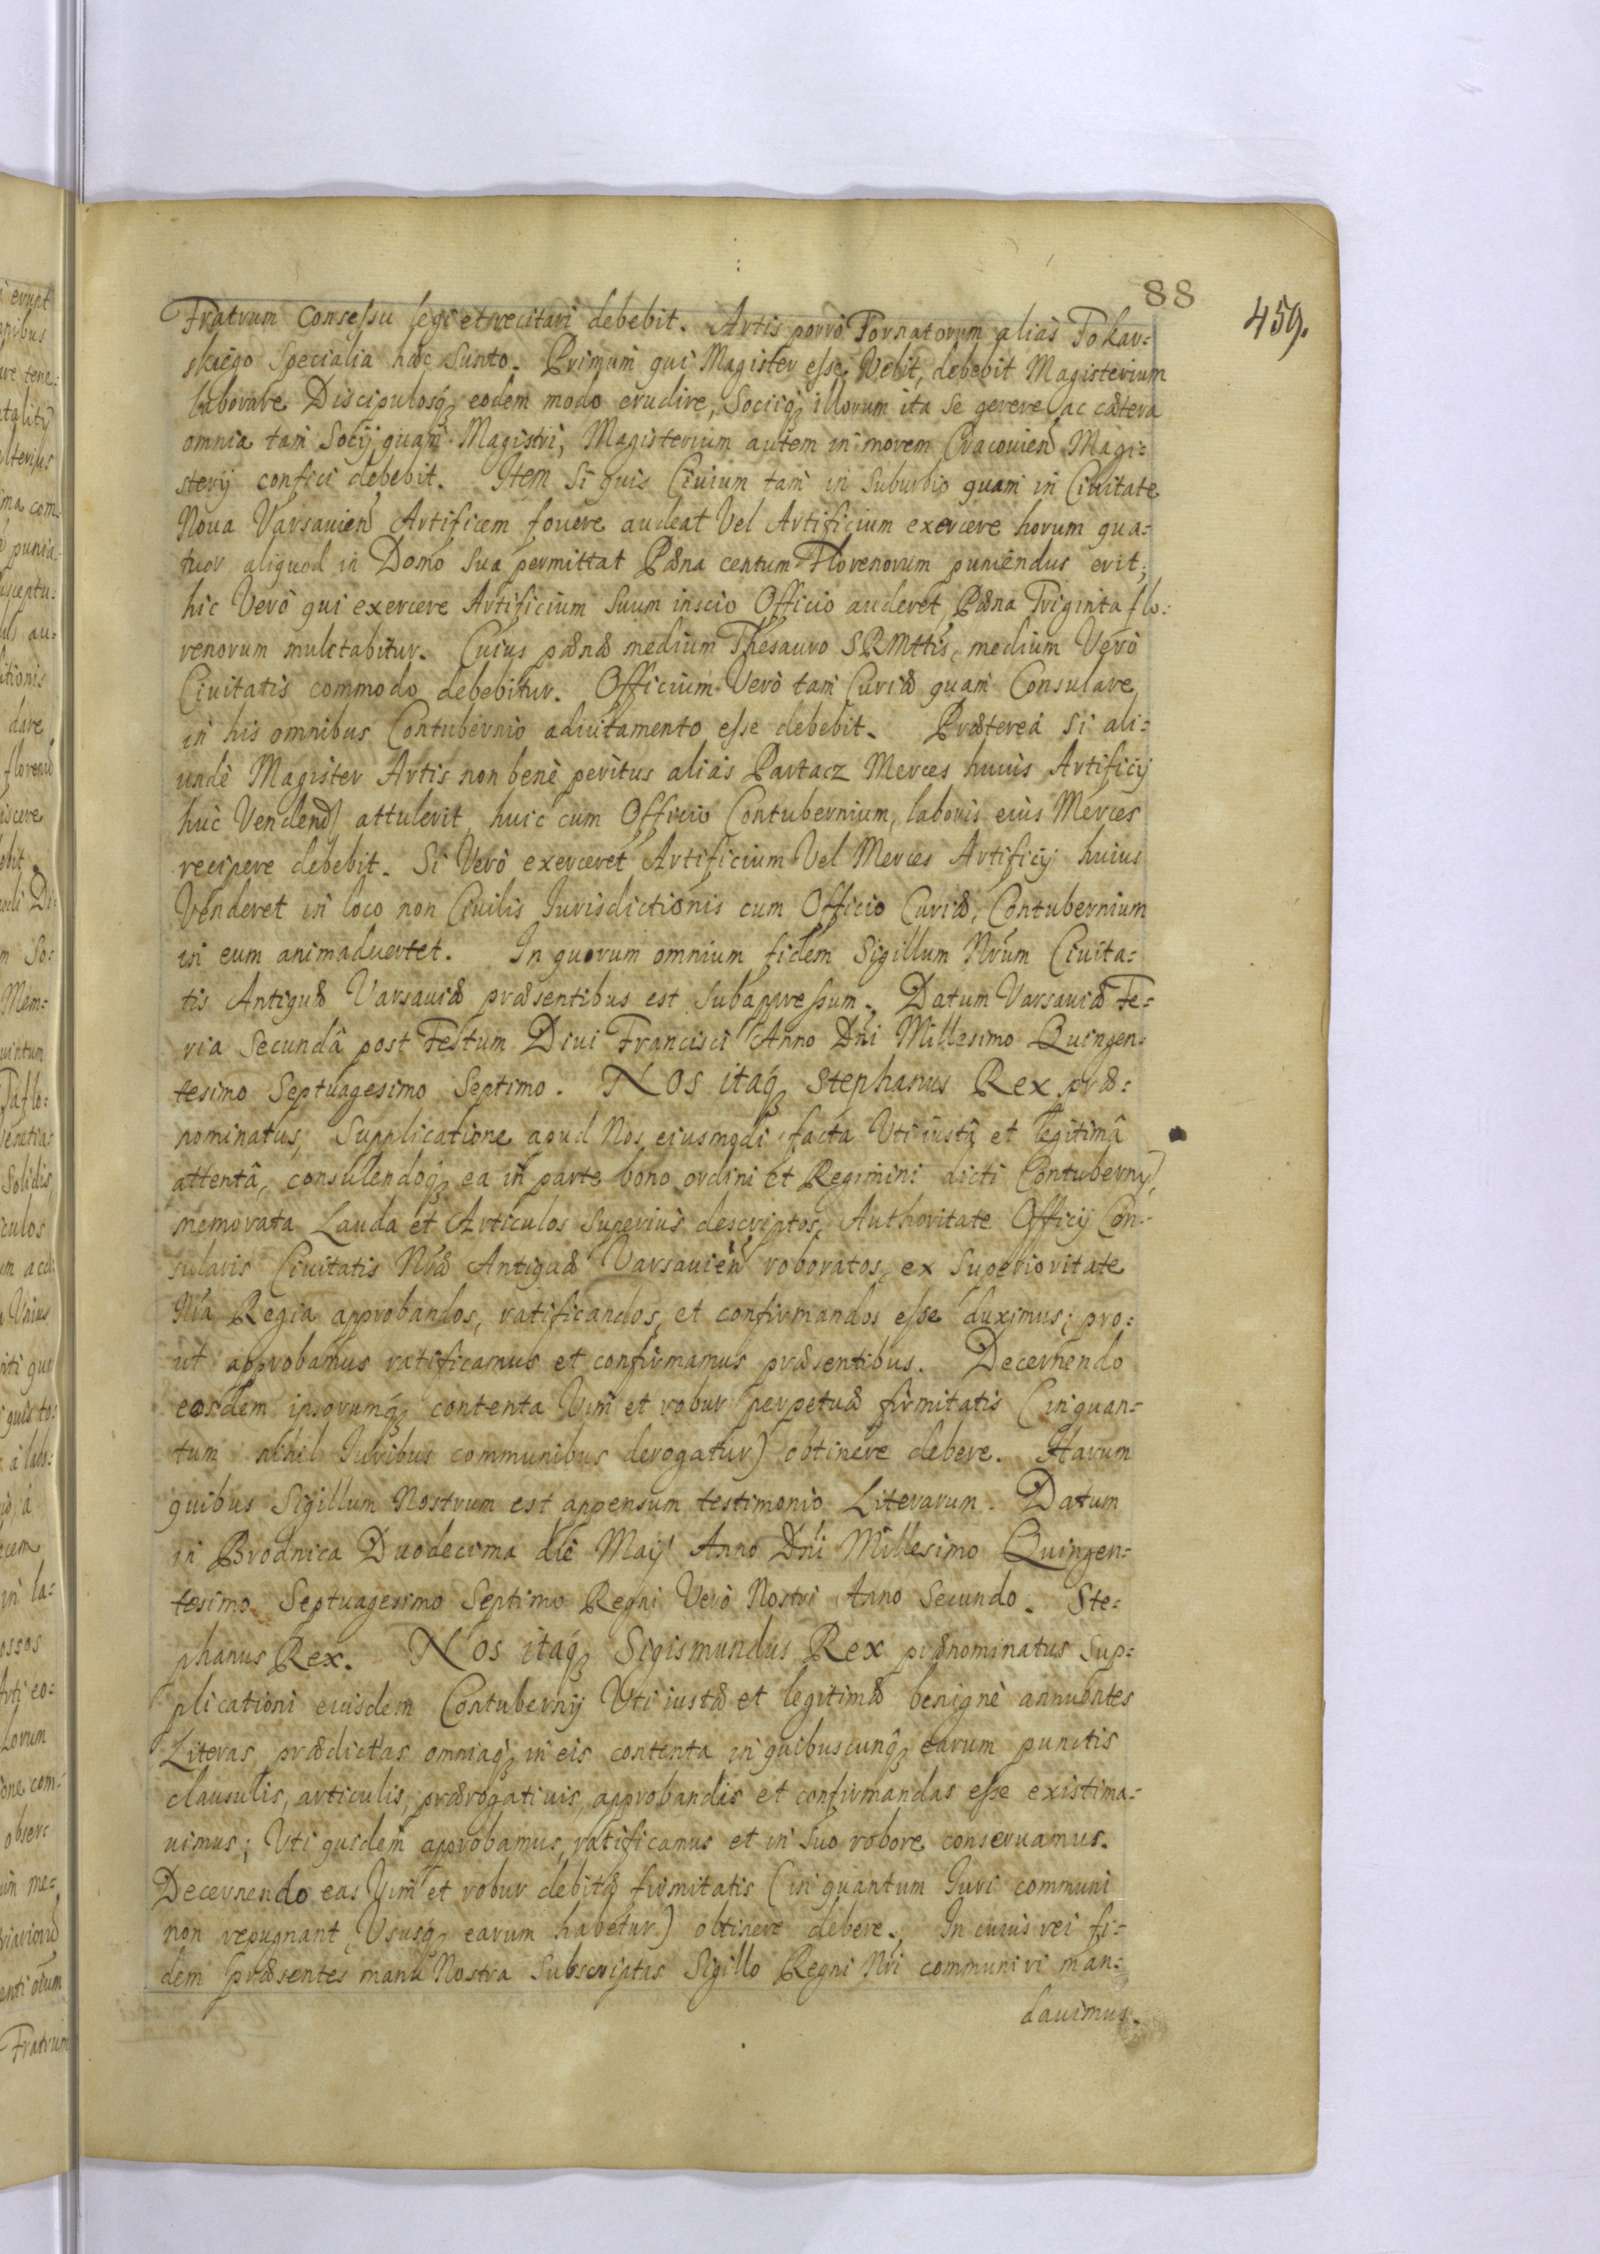 88
459.
Fratrum Consessu legi et recitari debebit. Artis porrò Tornatorum aliàs Tokar-
skiego Specialia hæc sunto. Primum qui Magister esse Velit, debebit Magisterium
laborare Discipulosq₃ eodem modo erudire, Sociiq₃ illorum ita se gerere ac cætera
omnia tam Socÿ quam Magistri, Magisterium autem in morem Cracouien Magi-
sterÿ confici debebit. Item Si quis Ciuium tam in Suburbio quam in Ciuitate
Noua Varsauien Artificem fouere audeat Vel Artificium exercere horum qua-
tuor aliquod in Domo Sua permittat Pæna centum Florenorum puniendus erit;
hic Verò qui exercere Artificium Suum inscio Officio auderet, Pæna Triginta flo-
renorum mulctabitur. Cuius pænæ medium Thesauro SRMttis, medium Verò
Ciuitatis commodo debebitur. Officium Verò tam Curiæ quam Consulare,
in his omnibus Contubernio adiutamento esse debebit. Prætereà Si ali-
undè Magister Artis non benè peritus aliàs Partacz Merces huius Artificÿ
huc Vendend attulerit, huic cum Officio Contubernium, laboris eius Merces
recipere debebit. Si Verò exerceret Artificium Vel Merces Artificÿ huius
Venderet in loco non Ciuilis Iurisdictionis cum Officio Curiæ, Contubernium
in eum animaduertet. In quorum omnium fidem Sigillum Nrum Ciuita-
tis Antiquæ Varsauiæ præsentibus est Subappressum. Datum Varsauiæ Fe-
ria Secundâ post Festum Diui Francisci Anno Dni Millesimo Quingen-
tesimo Septuagesimo Septimo. NOS itaq₃ Stephanus Rex præ-
nominatus, Supplicatione apud Nos eiusmodi facta Uti iustâ et legitimâ
attentâ, consulendoq₃ ea in parte bono ordini et Regimini dicti Contubernÿ,
memorata Lauda et Articulos Superius descriptos, Authoritate Officÿ Con-
sularis Ciuitatis Nræ Antiquæ Varsauien roboratos, ex Superioritate
Nra Regia approbandos, ratificandos, et confirmandos esse duximus; pro-
ut approbamus ratificamus et confirmamus præsentibus. Decernendo
eosdem ipsorumq₃ contenta Vim et robur perpetuæ firmitatis (inquan-
tum nihil Iuribus communibus derogatur) obtinere debere. Harum
quibus Sigillum Nostrum est appensum testimonio Literarum. Datum
in Brodnica Duodecima die Maÿ Anno Dni Millesimo Quingen-
tesimo Septuagesimo Septimo Regni Verò Nostri Anno Secundo. Ste-
phanus Rex. NOS itaq₃ Sigismundus Rex prænominatus Sup-
plicationi eiusdem Contubernÿ Uti iustæ et legitimæ benignè annuentes
Literas prædictas omniaq₃ in eis contenta in quibuscunq₃ earum punctis
clausulis, articulis, prærogatiuis approbandas et confirmandas esse existima-
uimus; Uti quidem approbamus, ratificamus et in Suo robore conseruamus.
Decernendo eas Vim et robur debitæ firmitatis (in quantum Iuri communi
non repugnant, Ususq₃ earum habetur) obtinere debere. In cuius rei fi-
dem præsentes manu Nostra Subscriptas Sigillo Regni Nri communiri man-
dauimus.